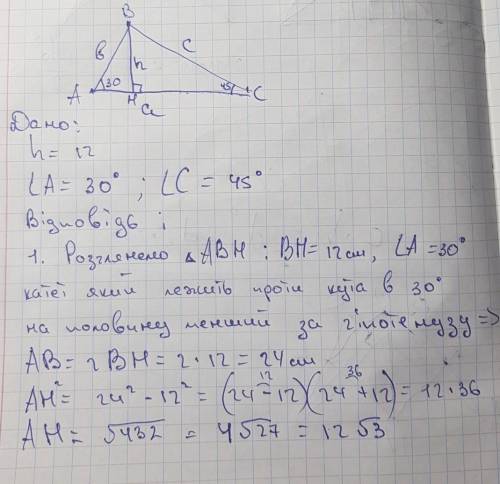 B
в
c
h
A
30
45
C
H
a
Дано:
h = 12
∠A = 30° ; ∠C = 45°
Відповідь :
1. Розглянемо △ABH : BH = 12 см, ∠A = 30°
катет який лежить проти кута в 30°
на половину менший за гіпотенузу ⇒
AB = 2BH = 2 · 12 = 24 см
12 36
AH² = 24² - 12² = (24 - 12)(24 + 12) = 12 · 36
AH = √432 = 4√27 = 12√3